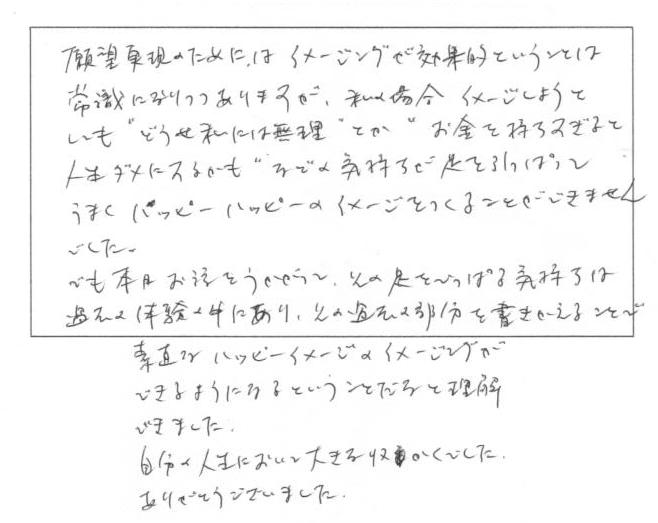 願望実現のためには イメージングが効果的ということは
常識になりつつありますが、私の場合 イメージしようと
しても"どうせ私には無理"とか"お金を持ちすぎると
人生ダメになるかも"などの気持ちが足を引っぱって
うまく ハッピーハッピーのイメージをつくることができません
でした。
でも本日お話をうかがって、その足をひっぱる気持ちは
過去の体験の中にあり、その過去の部分を書きかえることで
素直なハッピーイメージのイメージングが
できるようになるということだなと理解
できました.
自分の人生において大きな収かくでした.
ありがとうございました.